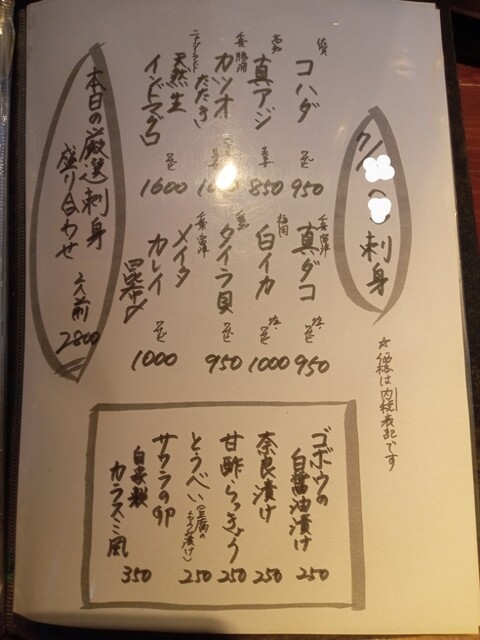 刺身
☆価格は内税表記です
佐賀
コハダ
950
高知
真アジ
850
カツオ
たたき
ニュージーランド
天然生
インドマグロ
1600
真ダコ
950
福岡
白イカ
1000
愛知
タイラ貝
950
メイタ
カレイ
昆布〆
1000
本日の厳選刺身
盛り合わせ
2人前
2800
ゴボウの
白醤油漬け
250
奈良漬け
250
甘酢らっきょう
250
とうべい(豆腐のもろみ漬け)
250
サワラの卵
自家製
カラスミ風
350